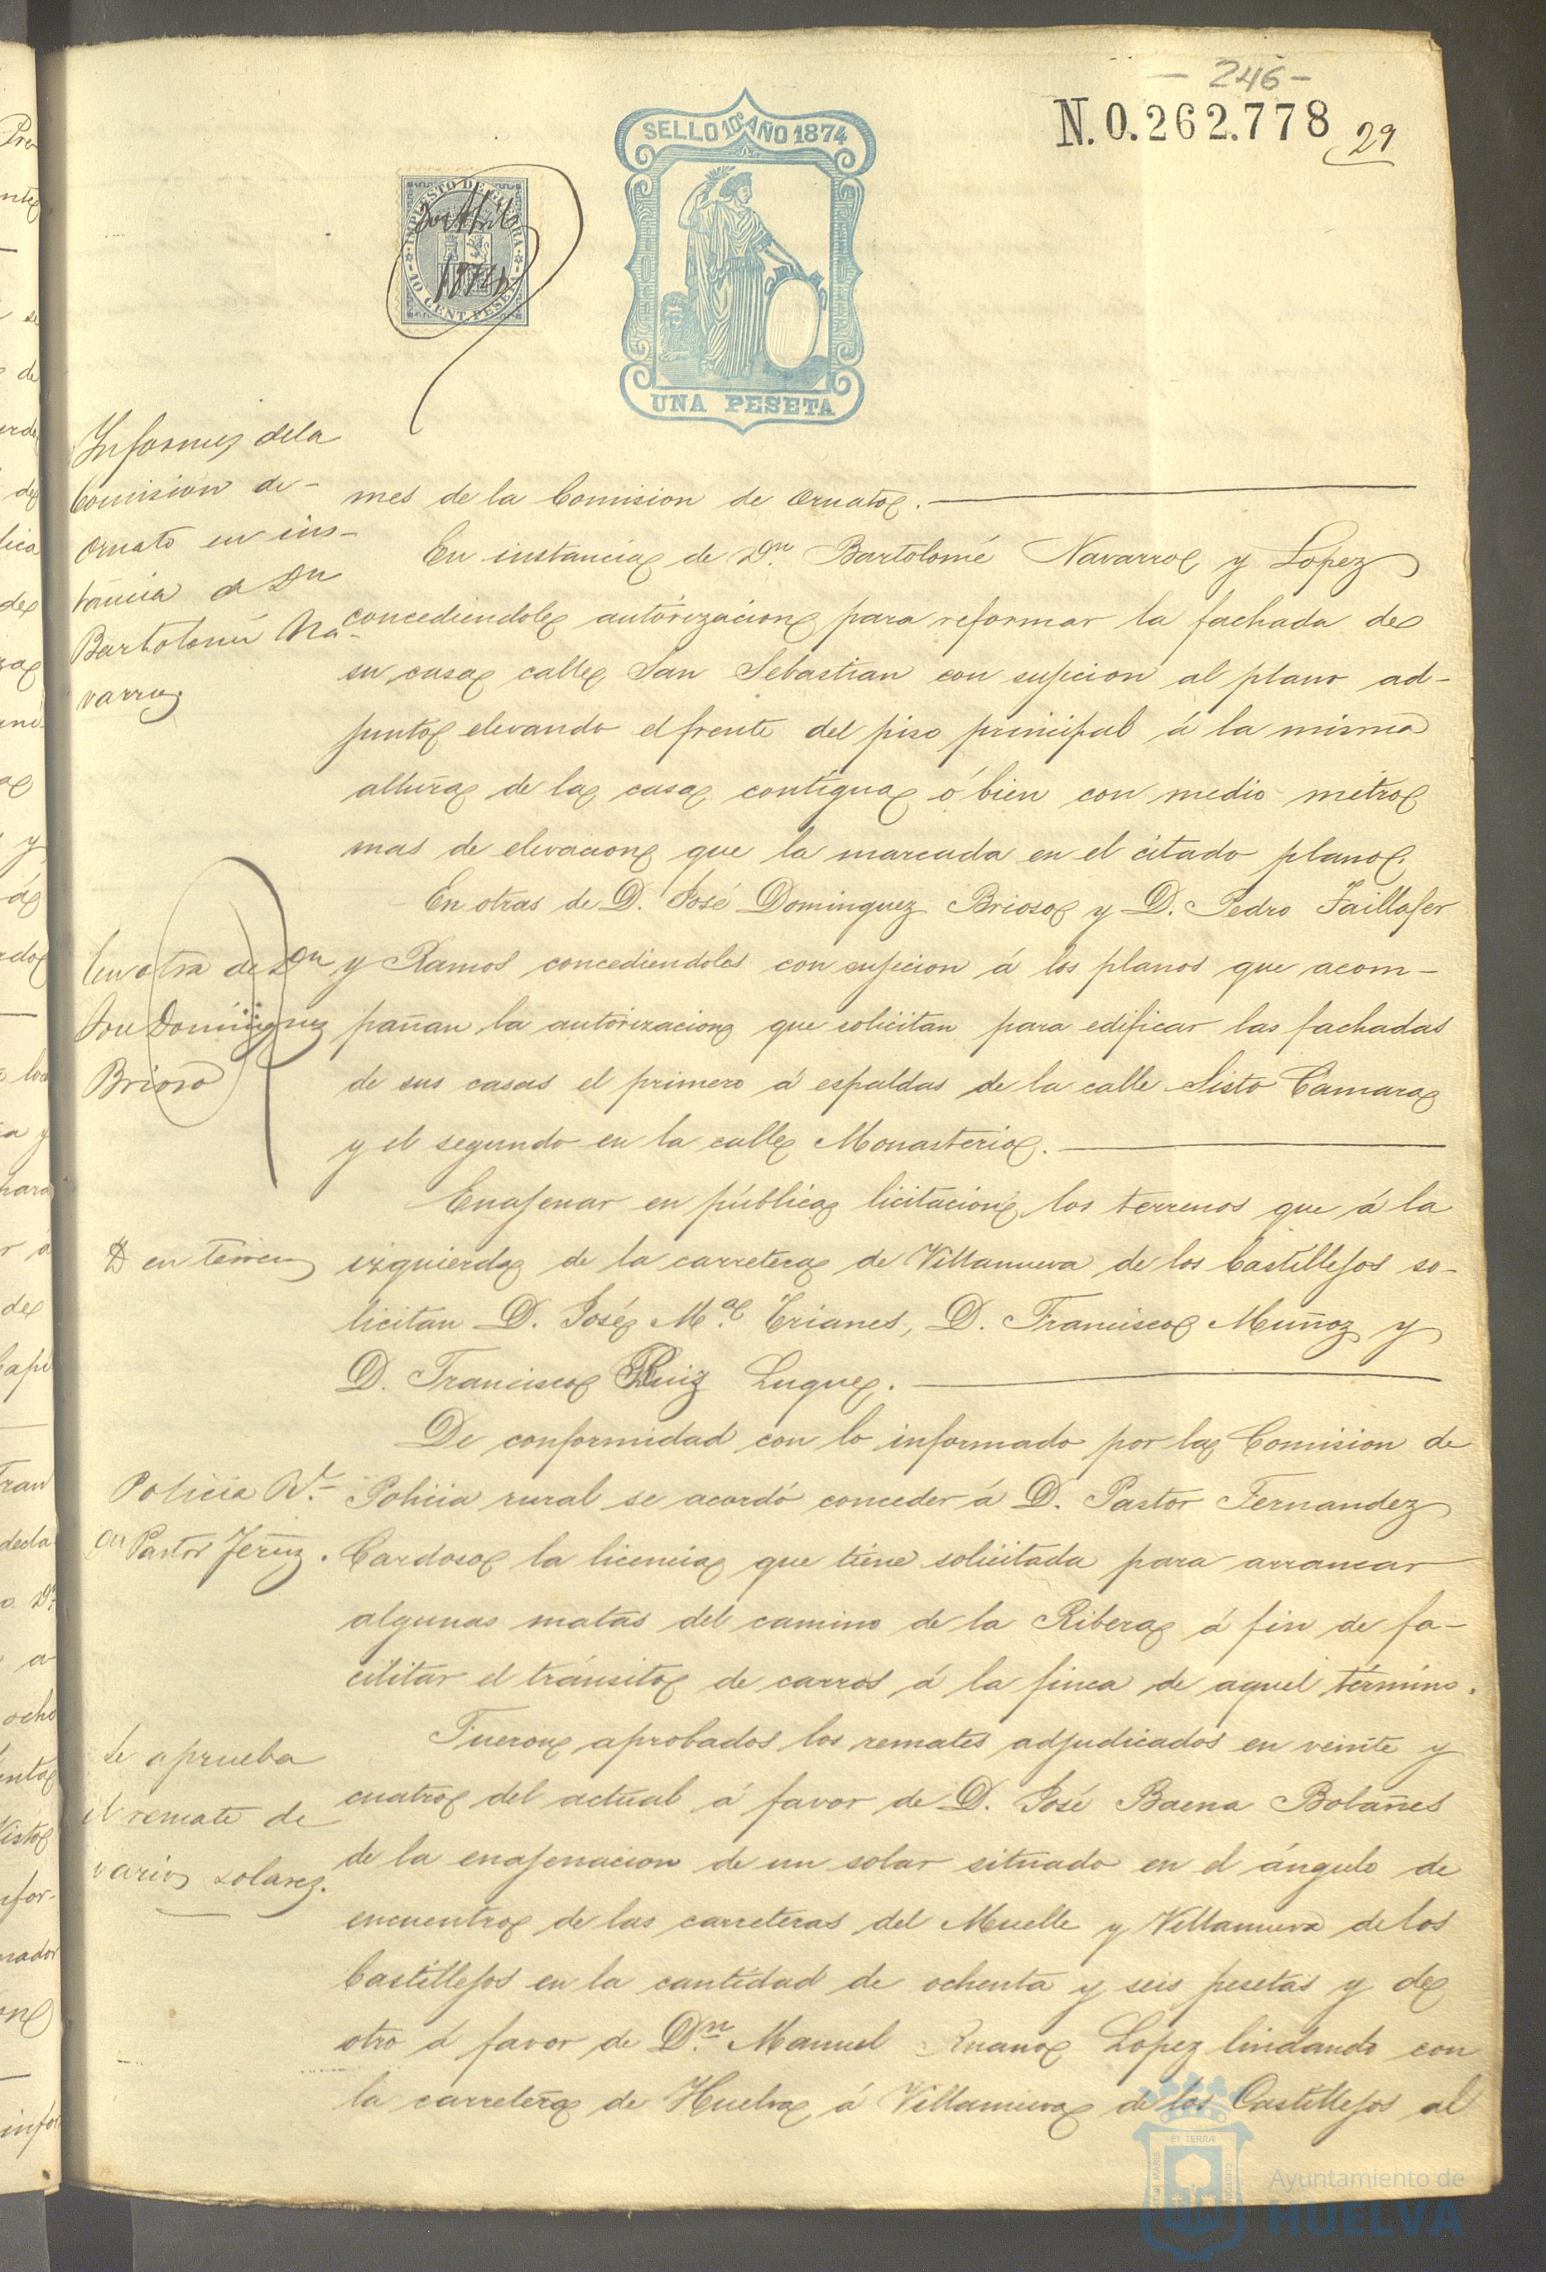 - 246 -
N. 0.262.778
29
SELLO 10º AÑO 1874
UNA PESETA
IMPUESTO DE GUERRA
10 CENT. PESETA
1874
Informes de la
Comision de
ornato en ins-
tancia de Dn
Bartolomé Na-
varro
mes de la Comision de ornato.
En instancia de Dn. Bartolomé Navarro y Lopez
concediendole autorizacion para reformar la fachada de
su casa calle San Sebastian con sujecion al plano ad-
junto elevando el frente del piso principal á la misma
altura de la casa contigua ó bien con medio metro
mas de elevacion que la marcada en el citado plano.
En otra de Dn
José Dominguez
Brioso
En otras de D. José Dominguez Brioso y D. Pedro Taillafer
y Ramos concediendoles con sujecion á los planos que acom-
pañan la autorizacion que solicitan para edificar las fachadas
de sus casas el primero á espaldas de la calle Sisto Cámara
y el segundo en la calle Monasterio.
en terreno
Enajenar en pública licitacion los terrenos que á la
izquierda de la carretera de Villanueva de los Castillejos so-
licitan D. José Mª Trianes, D. Francisco Muñoz y
D. Francisco Ruiz Luque.
Policia Rl.
Dn Pastor Ferнz.
De conformidad con lo informado por la Comision de
Policia rural se acordó conceder á D. Pastor Fernandez
Cardoso la licencia que tiene solicitada para arrancar
algunas matas del camino de la Ribera á fin de fa-
cilitar el tránsito de carros á la finca de aquel término.
Se aprueba
el remate de
varios solares.
Fueron aprobados los remates adjudicados en veinte y
cuatro del actual á favor de D. José Baena Bolañes
de la enajenacion de un solar situado en el ángulo de
encuentro de las carreteras del Muelle y Villanueva de los
Castillejos en la cantidad de ochenta y seis pesetas y de
otro á favor de Dn. Manuel Ruano Lopez lindando con
la carretera de Huelva á Villanueva de los Castillejos al
Ayuntamiento de
HUELVA